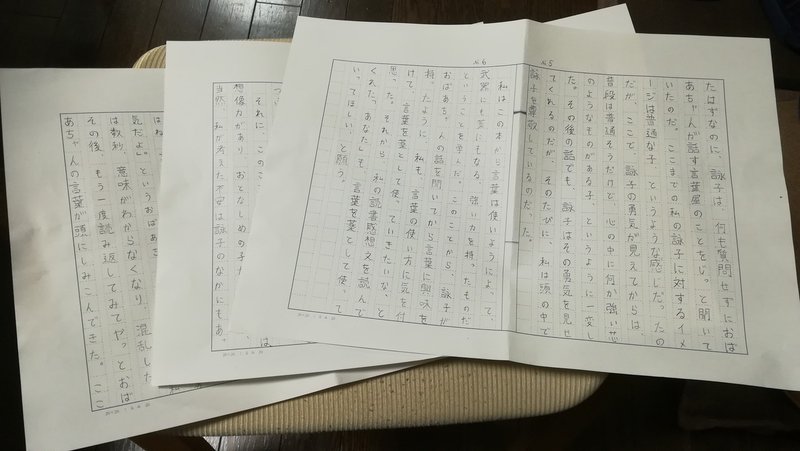 No.5
たはずなのに、詠子は、何も質問せずにおば
あちゃんが話す言葉屋のことをじっと聞いて
いたのだ。ここまでの私の詠子に対するイメ
ージは普通な子、というような感じだったの
だが、ここで、詠子の勇気が見えてからは、
普段は普通そうだけど、心の中に何か強い芯
のようなものがある子、というように一変し
た。その後の話でも、詠子はその勇気を見せ
てくれるのだが、そのたびに、私は頭の中で
詠子を尊敬しているのだった。
No.6
私はこの本から言葉は使いようによって、
武器にも薬にもなる、強い力を持ったものだ
ということを学んだ。このことから、詠子が
おばあちゃんの話を聞いてから言葉に興味を
持ったように、私も、言葉の使い方に気を付
けて、言葉を薬として使っていきたいな、と
思った。それから、私の読書感想文を読んで
くれた、あなたも、言葉を薬として使って
いってほしい、と願う。
は、
それに、このこ
想像力があり、おとなしめの子
当然、私が考えた不安は詠子のなかにもあっ
はね、
気だよ」というおばあ
は数秒、意味がわからなくなり、混乱した
その後、もう一度読み返してみてやっとおば
あちゃんの言葉が頭にしみこんできた。ここ